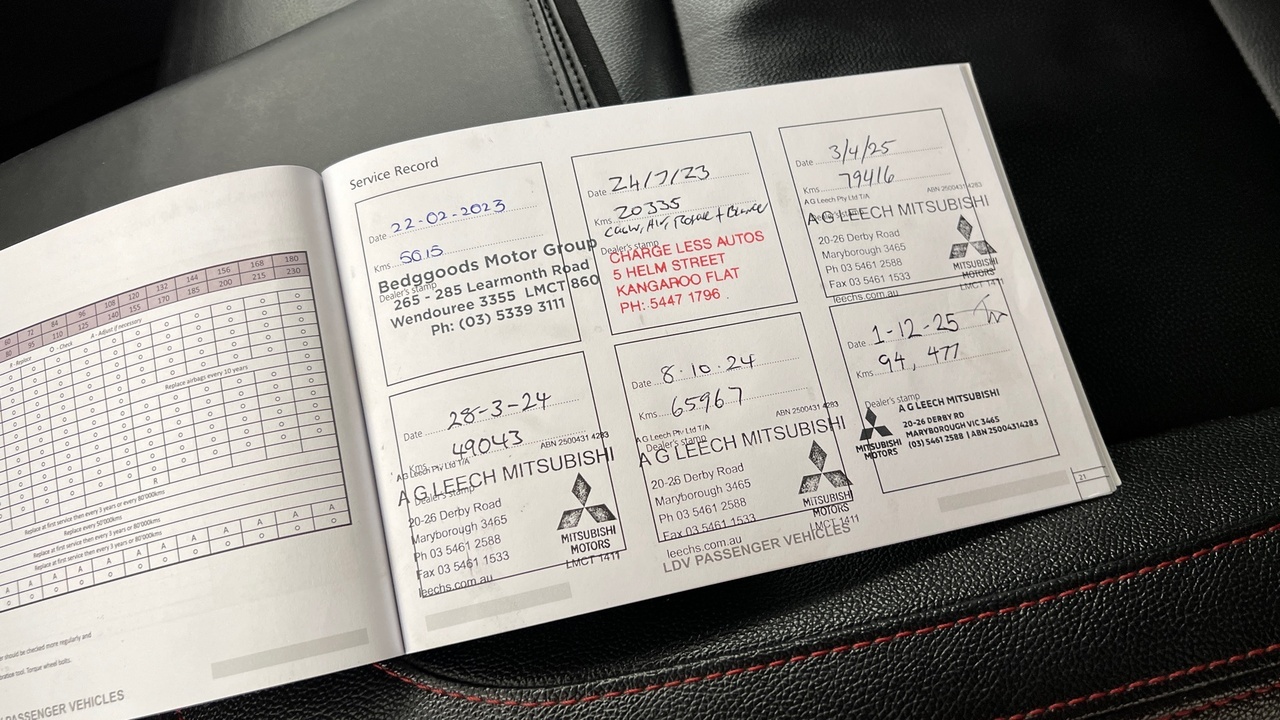 108 120 132 144 156 168 180
60 72 84 96
80 95 110 125 140 155 170 185 200 215 230
- Replace O - Check A - Adjust if necessary
Replace airbags every 10 years
R
Replace at first service then every 3 years or every 80'000kms
Replace every 50'000kms
Replace at first service then every 3 years or 80'000kms
Replace at first service then every 3 years or 80'000kms
A A A A A A A A A A A
should be checked more regularly and
tool. Torque wheel bolts.
PASSENGER VEHICLES
Service Record
Date 22-02-2023
Kms 5015
Dealer's stamp
Bedggoods Motor Group
265 - 285 Learmonth Road
Wendouree 3355 LMCT 860
Ph: (03) 5339 3111
Date 24/7/23
Kms 20335
Dealer's stamp
CHARGE LESS AUTOS
5 HELM STREET
KANGAROO FLAT
PH: 5447 1796
Date 3/4/25
Kms 79416
ABN 25004314283
A G Leech Pty Ltd T/A
Dealer's stamp
A G LEECH MITSUBISHI
20-26 Derby Road
Maryborough 3465
Ph 03 5461 2588
Fax 03 5461 1533
leechs.com.au
MITSUBISHI
MOTORS
LMCT 1411
Date 28-3-24
Kms 49043
ABN 2500431 4283
A G Leech Pty Ltd T/A
Dealer's stamp
A G LEECH MITSUBISHI
20-26 Derby Road
Maryborough 3465
Ph 03 5461 2588
Fax 03 5461 1533
leechs.com.au
MITSUBISHI
MOTORS
LMCT 1411
Date 8.10.24
Kms 65967
ABN 2500431 4283
A G Leech Pty Ltd T/A
Dealer's stamp
A G LEECH MITSUBISHI
20-26 Derby Road
Maryborough 3465
Ph 03 5461 2588
Fax 03 5461 1533
leechs.com.au
MITSUBISHI
MOTORS
LMCT 1411
Date 1-12-25
Kms 94,477
Dealer's stamp
A G LEECH MITSUBISHI
20-26 DERBY RD
MARYBOROUGH VIC 3465
(03) 5461 2588 | ABN 25004314283
MITSUBISHI
MOTORS
LDV PASSENGER VEHICLES
21